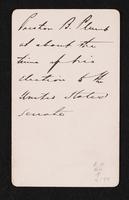 Preston B. Plumb
at about the
time of his
election to the
United States
Senate